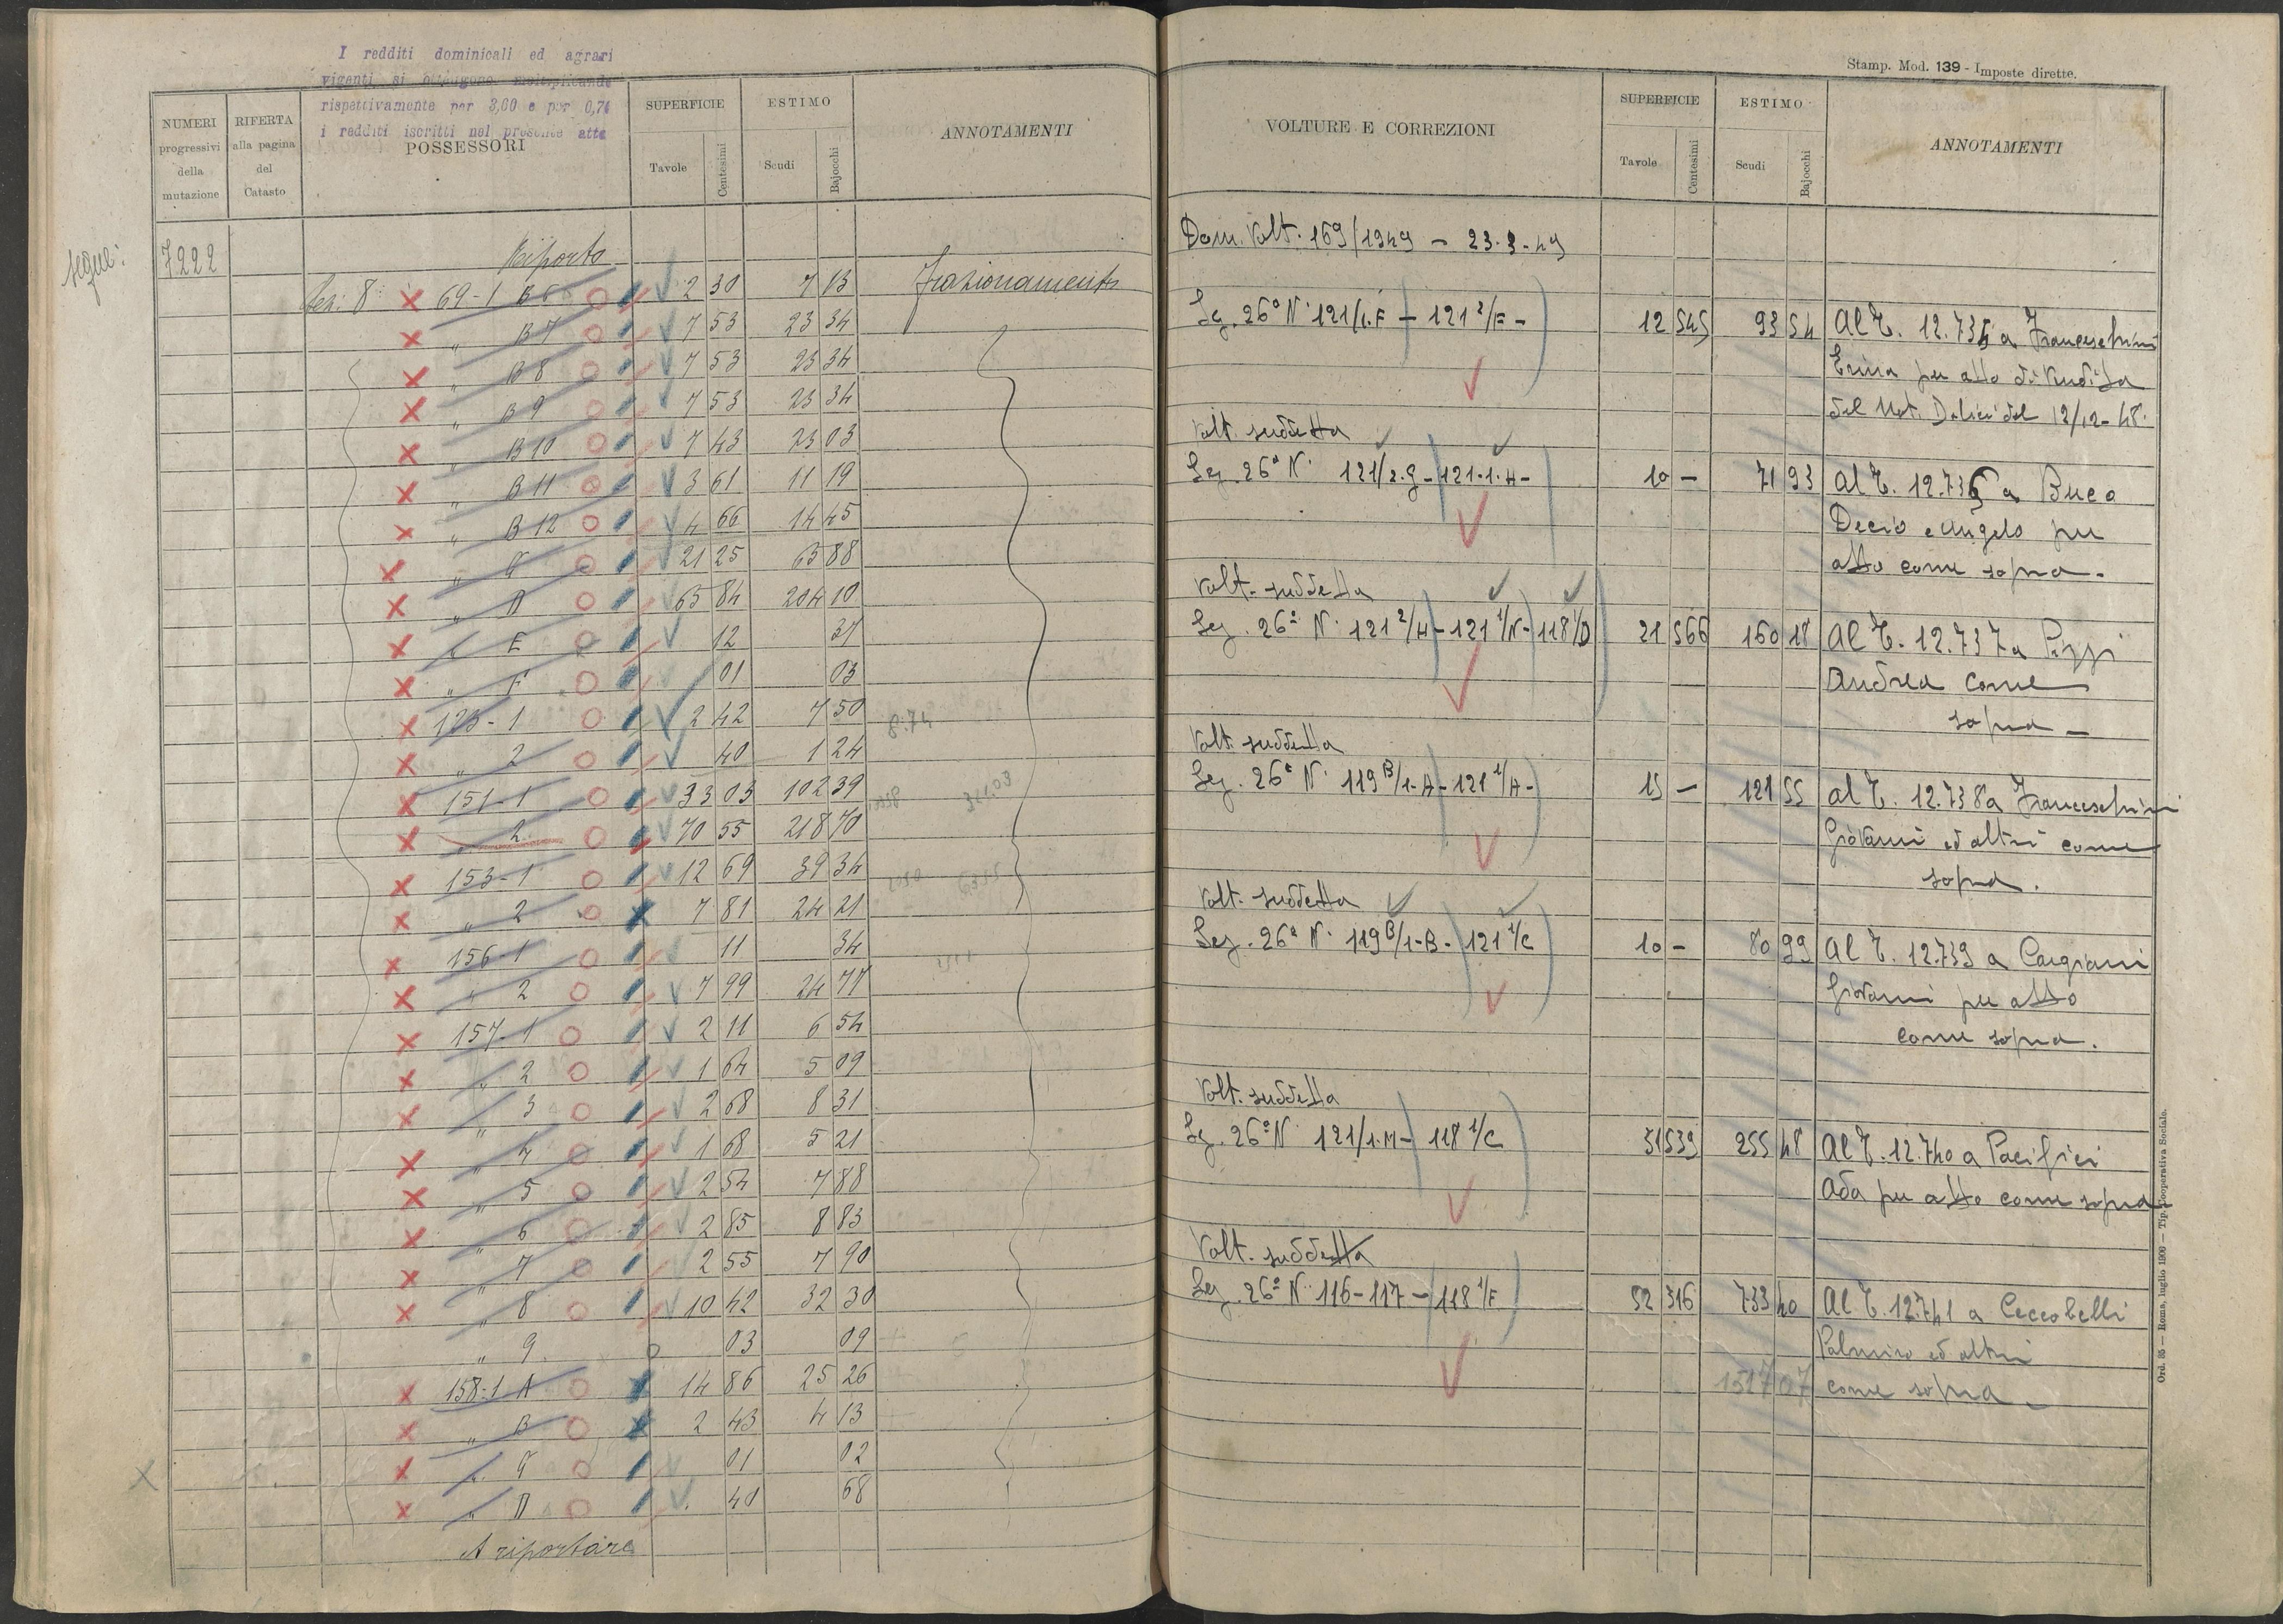 I redditi dominicali ed agrari
vigenti si ottengono moltiplicando
rispettivamente per 3,60 e per 0,74
i redditi iscritti nel presente atto
NUMERI progressivi della mutazione
RIFERTA alla pagina del Catasto
POSSESSORI
SUPERFICIE
Tavole
Centesimi
ESTIMO
Scudi
Bajocchi
ANNOTAMENTI
segue: 7222
Riporto
Sez. 8 69-1 B6 2 30 7 13 frazionamento
„ B7 7 53 23 34
„ B8 7 53 23 34
„ B9 7 53 23 34
„ B10 7 43 23 03
„ B11 3 61 11 19
„ B12 4 66 14 45
„ 21 25 65 88
„ D 65 84 204 10
„ E 12 37
„ F 01 03
123-1 2 42 7 50 8.74
„ 2 40 1 24
151-1 33 03 102 39
„ 2 70 55 218 70
153-1 12 69 39 34
„ 2 7 81 24 21
156-1 11 34
„ 2 7 99 24 77
157-1 2 11 6 54
„ 2 1 64 5 09
„ 3 2 68 8 31
„ 4 1 68 5 21
„ 5 2 54 7 88
„ 6 2 85 8 83
„ 7 2 55 7 90
„ 8 10 42 32 30
„ 9 03 09
158-1 A 14 86 25 26
„ B 2 43 4 13
„ 01 02
„ D 40 68
A riportare
Stamp. Mod. 139 - Imposte dirette.
VOLTURE E CORREZIONI
SUPERFICIE
Tavole
Centesimi
ESTIMO
Scudi
Bajocchi
ANNOTAMENTI
Dom. Volt. 169/1949 - 23-3-49
Sez. 26ª N. 121/1.F - 121 2/F - 12 545 93 54 Al T. 12.735 a Franceschini
Erina per atto di vendita
del Not. del 12/12-48.
Volt. suddetta
Sez. 26ª N. 121/2.G - 121-1-H - 10 - 71 93 Al T. 12.736 a Buco
Decio e Angelo per
atto come sopra.
Volt. suddetta
Sez. 26ª N. 121 2/H - 121 1/N - 118 1/D 21 566 160 18 Al T. 12.737 a Pizzi
Andrea come
sopra -
Volt. suddetta
Sez. 26ª N. 119 B/1-A - 121 1/A - 15 - 121 55 al T. 12.738 a Franceschini
Giovanni ed altri come
sopra.
Volt. suddetta
Sez. 26ª N. 119 B/1-B - 121 1/C 10 - 80 99 Al T. 12.739 a
Giovanni per atto
come sopra.
Volt. suddetta
Sez. 26ª N. 121/1.M - 118 1/C 31 539 255 48 Al T. 12.740 a Pacifici
Ada per atto come sopra
Volt. suddetta
Sez. 26ª N. 116-117 - 118 1/F 52 316 733 40 Al T. 12.741 a Ceccobelli
Palmiro ed altri
1517 07 come sopra -
Ord. 85 — Roma, luglio 1900 — Tip. Cooperativa Sociale.